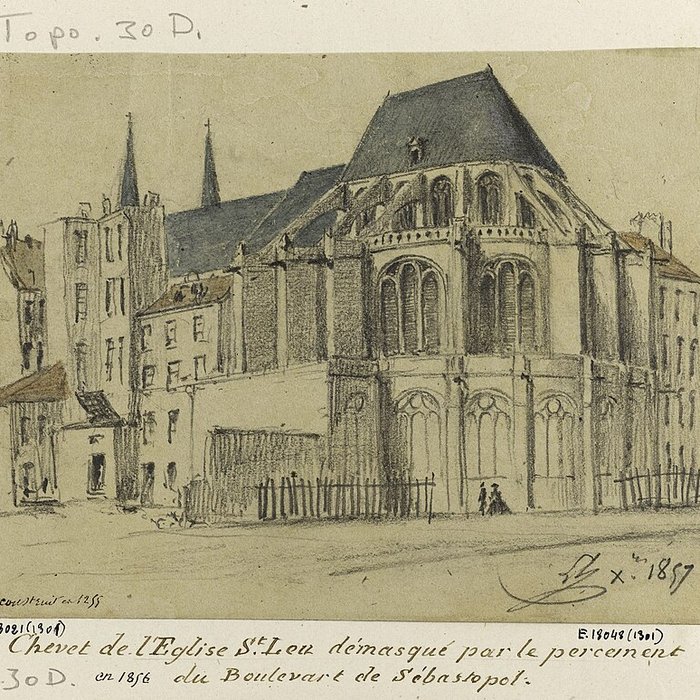 Topo. 30 D.
construit en 1255
Xbre 1857
3021 (1301)
E.18048 (1301)
Chevet de l'Eglise St. Leu démasqué par le percement
30 D.
en 1856 du Boulevart de Sébastopol.